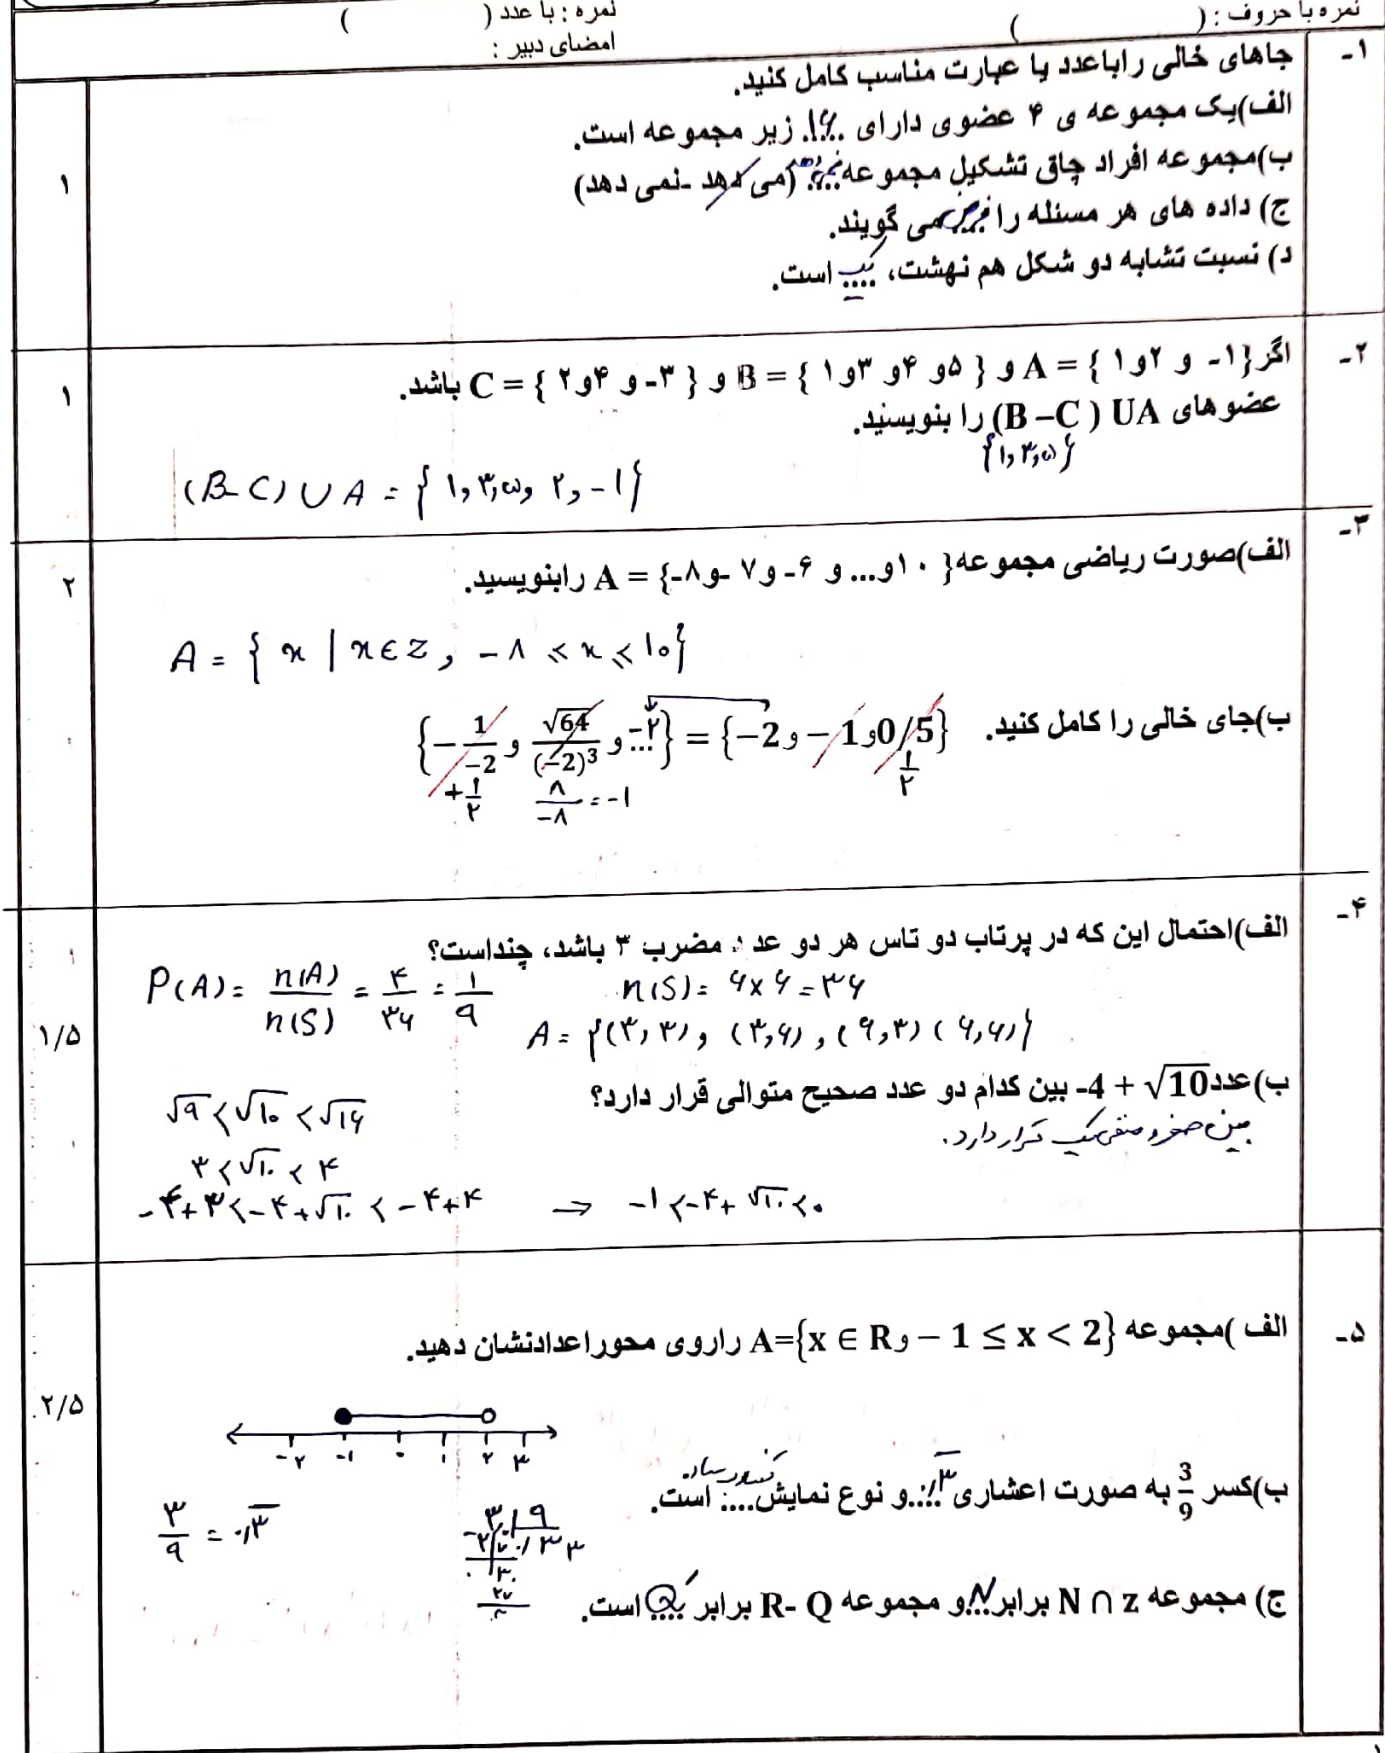 نمره با حروف : ( ) نمره : با عدد ( )
امضای دبیر :
۱- جاهای خالی را باعدد یا عبارت مناسب کامل کنید.
الف)یک مجموعه ی ۴ عضوی دارای ۱۶ زیر مجموعه است.
ب)مجموعه افراد چاق تشکیل مجموعه نمی دهد (می دهد -نمی دهد)
ج) داده های هر مسئله را فرض می گویند.
د) نسبت تشابه دو شکل هم نهشت، یک است.
۱
۲- اگر {۱- و ۲و۱ } = A و { ۵و ۴و ۳و۱ } = B و { ۳- و ۴و۲ } = C باشد.
عضوهای (B – C ) UA را بنویسید.
{۱,۳,۵}
(B-C) ∪ A = { ۱, ۳, ۵, ۲, -۱ }
۱
۳- الف)صورت ریاضی مجموعه { ۱۰و... و ۶- و۷ -و۸-} = A رابنویسید.
A = { x | x ∈ Z , -۸ ⩽ x ⩽ ۱۰}
ب)جای خالی را کامل کنید. {−1/−2 و √64/(−2)³ و ... -۲} = {−2و −1و0/5}
+۱/۲ ۸/-۸ = -۱ ۱/۲
۲
۴- الف)احتمال این که در پرتاب دو تاس هر دو عدد مضرب ۳ باشد، چنداست؟
P(A) = n(A)/n(S) = ۴/۳۶ = ۱/۹ n(S) = ۶×۶ = ۳۶
A = {(۳,۳), (۳,۶), (۶,۳) (۶,۶)}
ب)عدد 4 + √10- بین کدام دو عدد صحیح متوالی قرار دارد؟
بین صفر و منفی یک قرار دارد.
√۹ < √۱۰ < √۱۶
۳ < √۱۰ < ۴
-۴+۳ < -۴+√۱۰ < -۴+۴ ⇒ -۱ < -۴+√۱۰ < ۰
۱/۵
۵- الف )مجموعه A={x ∈ R و − 1 ≤ x < 2} راروی محوراعدادنشان دهید.
-۲ -۱ ۰ ۱ ۲ ۳
ب)کسر 3/9 به صورت اعشاری ۰/۳̅ و نوع نمایش .... است.
۳/۹ = ۰/۳̅
ج) مجموعه N ∩ z برابر N و مجموعه R- Q برابر Q′ است.
۲/۵